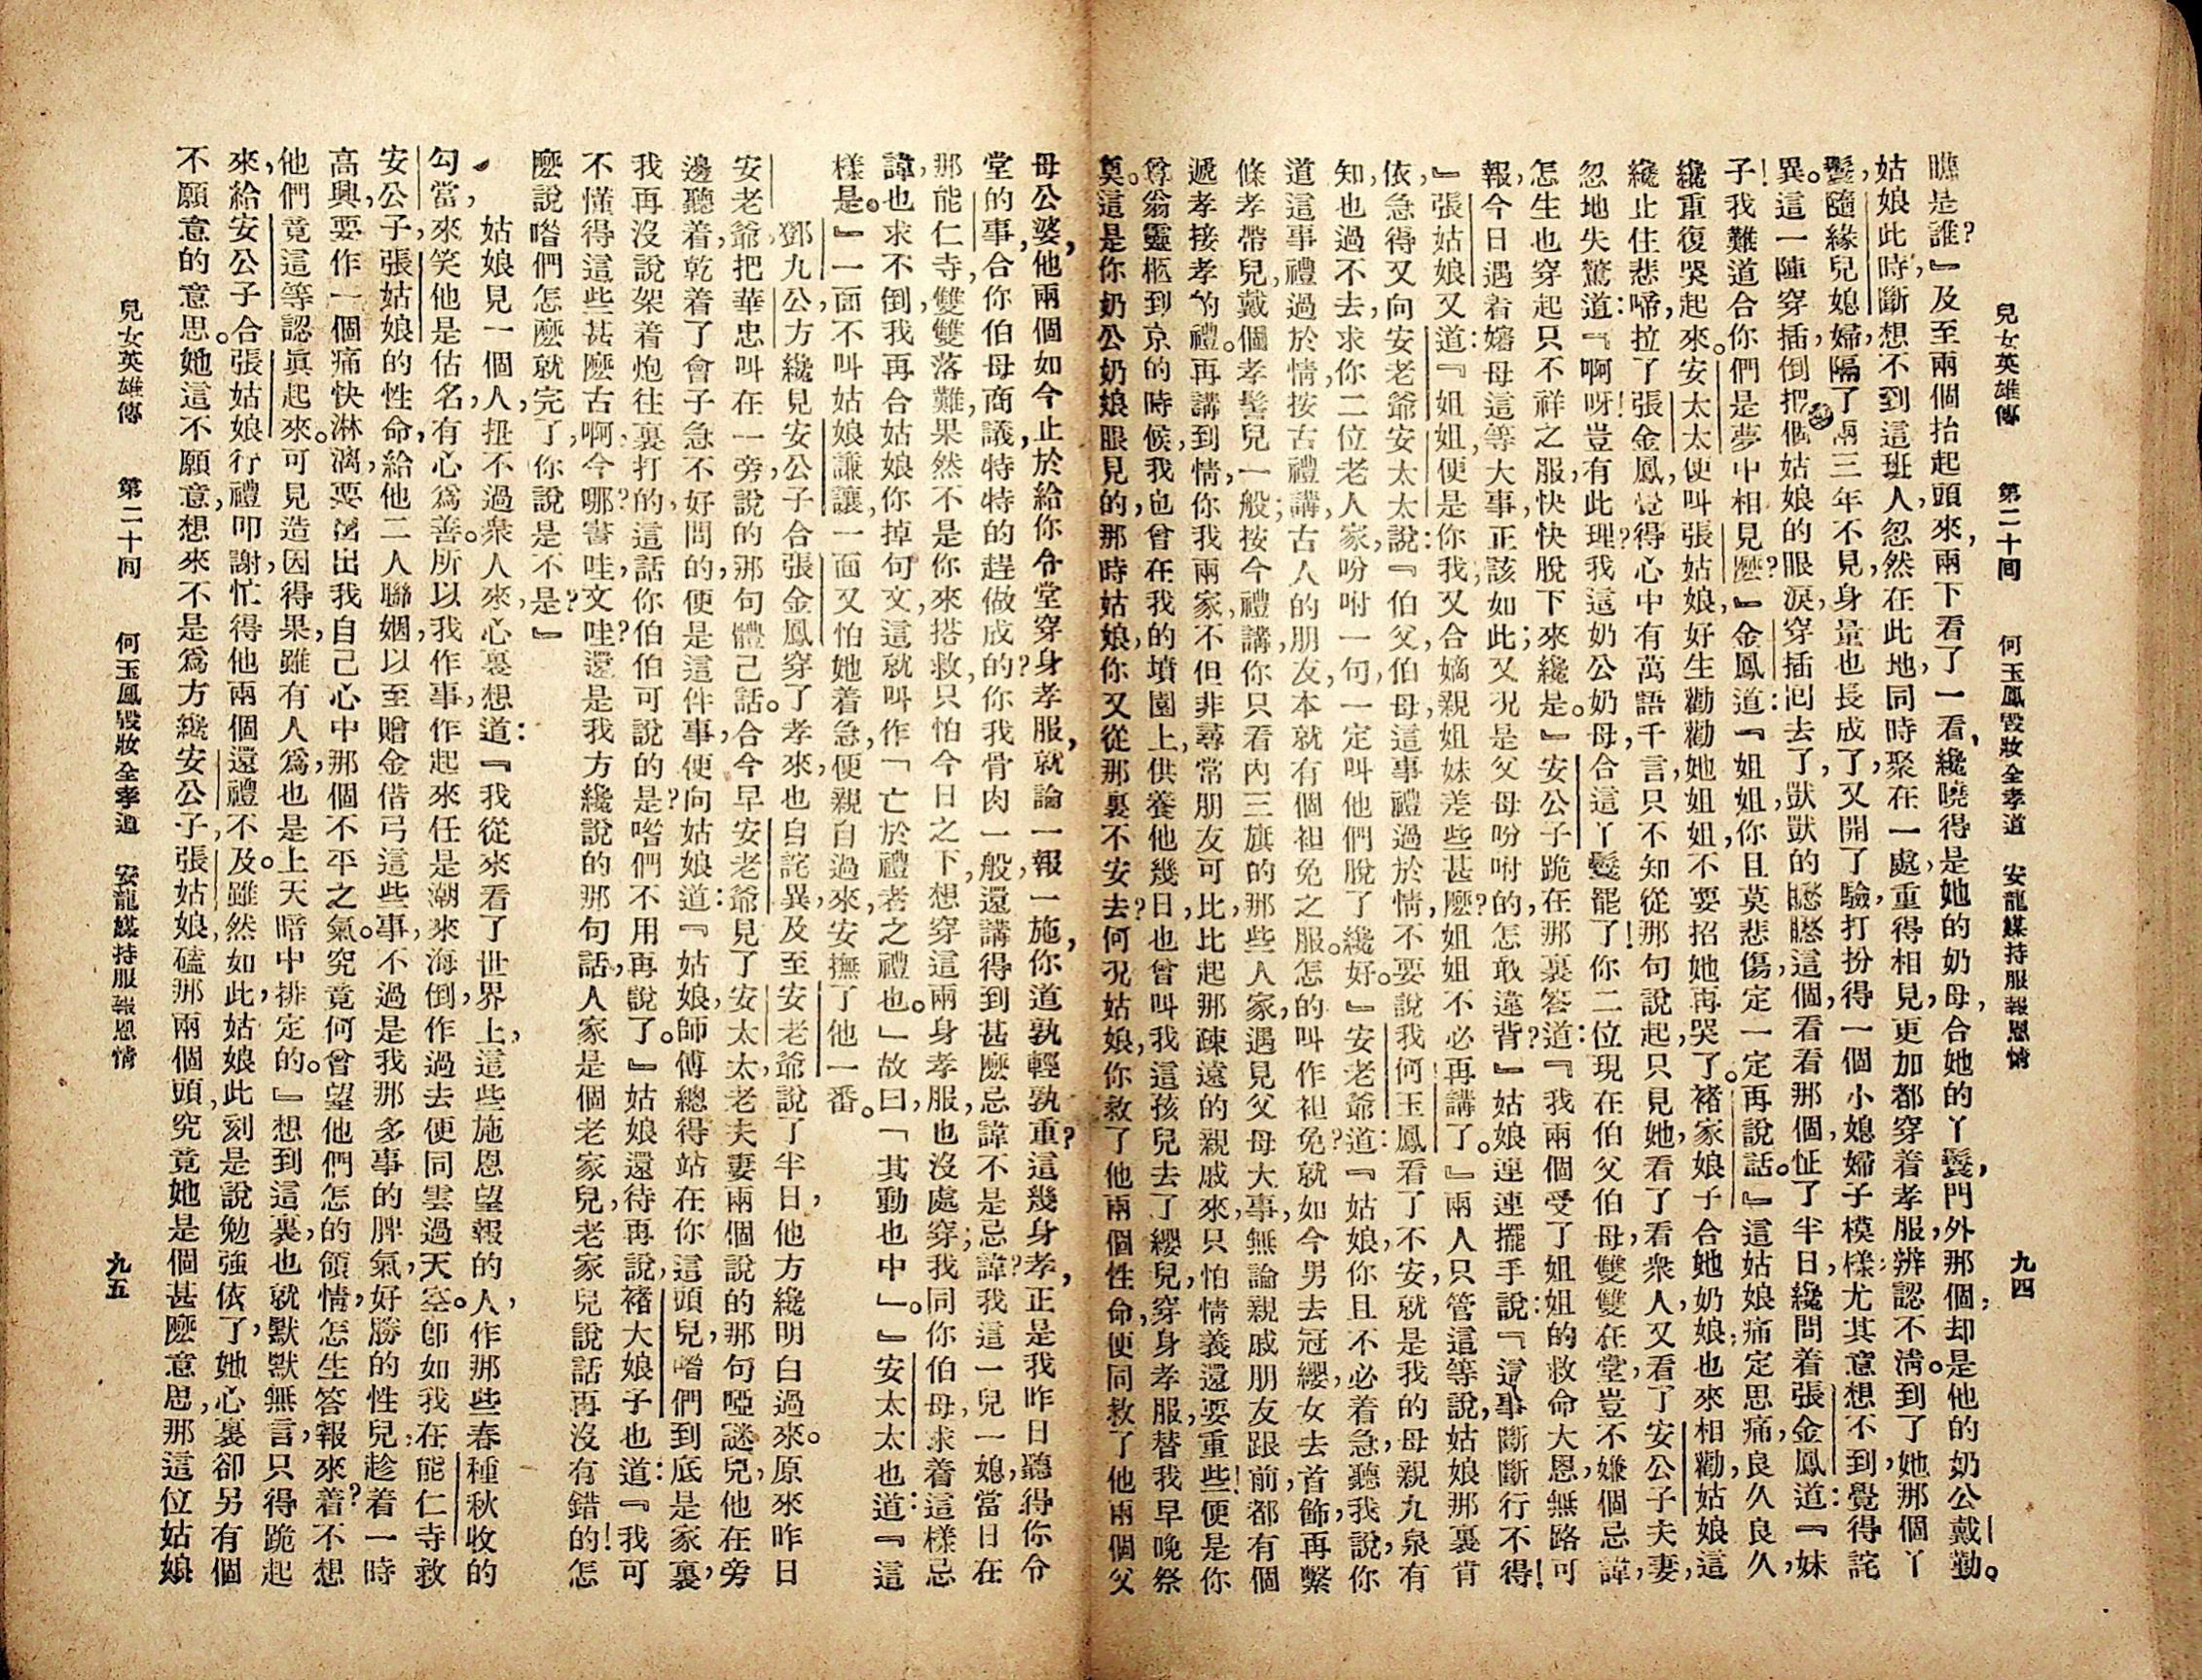 兒女英雄傳　第二十回　何玉鳳毀妝全孝道　安龍媒持服報恩情　九四
瞧是誰？』及至兩個抬起頭來，兩下看了一看，纔曉得是她的奶母，合她的丫鬟，門外那個，却是他的奶公戴勤。
姑娘此時，斷想不到這班人，忽然在此地同時聚在一處，重得相見，更加都穿着孝服，辨認不清。到了她那個丫
鬟，隨緣兒媳婦，隔了兩三年不見，身量也長成了，又開了驗，打扮得一個小媳婦子模樣，尤其意想不到，覺得詫
異。這一陣穿插，倒把個姑娘的眼淚，穿插回去了，獃獃的瞧瞧這個，看看那個，怔了半日，纔問着張金鳳道：『妹
子！我難道合你們是夢中相見麼？』金鳳道：『姐姐，你且莫悲傷，定一定再說話。』這姑娘痛定思痛，良久良久，
纔重復哭起來。安太太便叫張姑娘，好生勸勸她姐姐，不要招她再哭了。褚家娘子合她奶娘；也來相勸，姑娘這
纔止住悲啼，拉了張金鳳，覺得心中有萬語千言，只不知從那句說起，只見她，看了看衆人，又看了安公子夫妻，
忽地失驚道：『啊呀！豈有此理？我這奶公奶母，合這丫鬟罷了！你二位現在伯父伯母，雙雙在堂，豈不嫌個忌諱，
怎生也穿起只不祥之服，快快脫下來纔是。』安公子跪在那裏答道：『我兩個受了姐姐的救命大恩，無路可
報，今日遇着嬸母這等大事，正該如此；又況是父母吩咐的，怎敢違背？』姑娘連連擺手說：『這事斷斷行不得！
』張姑娘又道：『姐姐，便是你我，又合嫡親姐妹差些甚麼？姐姐不必再講了。』兩人只管這等說，姑娘那裏肯
依，急得又向安老爺安太太說：『伯父，伯母，這事禮過於情，不要說我何玉鳳看了不安，就是我的母親九泉有
知，也過不去，求你二位老人家，吩咐一句，一定叫他們脫了纔好。』安老爺道：『姑娘，你且不必着急，聽我說，你
道這事禮過於情，按古禮講，古人的朋友，本就有個袒免之服。怎的叫作袒免？就如今男去冠纓，女去首飾，再繫
條孝帶兒，戴個孝髻兒一般；按今禮講，你只看內三旗的那些人家，遇見父母大事，無論親戚朋友跟前，都有個
遞孝接孝的禮。再講到情，你我兩家，不但非尋常朋友可比，比起那疎遠的親戚來，只怕情義還要重些！便是你
尊翁靈柩到京的時候，我也曾在我的墳園上，供養他幾日，也曾叫我這孩兒去了纓兒，穿身孝服，替我早晚祭
奠。這是你奶公奶娘眼見的，那時姑娘，你又從那裏不安去？何況姑娘，你救了他兩個性命，便同救了他兩個父
母公婆，他兩個如今止於給你令堂穿身孝服，就論一報一施，你道孰輕孰重？這幾身孝，正是我昨日聽得你令
堂的事，合你伯母商議，特特的趕做成的？你我骨肉一般，還講得到甚麼忌諱不是忌諱？我這一兒一媳，當日在
那能仁寺，雙雙落難，果然不是你來搭救，只怕今日之下，想穿這兩身孝服，也沒處穿；我同你伯母，求着這樣忌
諱，也求不倒，我再合姑娘，你掉句文，這就叫作『亡於禮者之禮也。』故曰，『其動也中』。』安太太也道：『這
樣是。』一面不叫姑娘謙讓，一面又怕她着急，便親自過來，安撫了他一番。
鄧九公方纔見安公子合張金鳳穿了孝來，也自詫異，及至安老爺說了半日，他方纔明白過來。原來昨日
安老爺，把華忠叫在一旁，說的那句體己話。合今早安老爺見了安太太，老夫妻兩個說的那句啞謎兒，他在旁
邊聽着，乾着了會子急，不好問的，便是這件事，便向姑娘道：『姑娘，師傅總得站在你這頭兒，喒們到底是家裏，
我再沒說架着炮往裏打的，這話你伯伯可說的是？喒們不用再說了。』姑娘還待再說，褚大娘子也道：『我可
不懂得這些甚麼古啊，今哪？書哇，文哇？還是我方纔說的那句話，人家是個老家兒，老家兒說話再沒有錯的！怎
麼說喒們怎麼就完了，你說是不是？』
姑娘見一個人，扭不過衆人來，心裏想道：『我從來看了世界上，這些施恩望報的人，作那些春種秋收的
勾當，來笑他是估名，有心爲善。所以我作事，作起來任是潮來海倒，作過去便同雲過天空。卽如我在能仁寺救
安公子，張姑娘的性命，給他二人聯姻，以至贈金借弓這些事，不過是我那多事的脾氣，好勝的性兒，趁着一時
高興，要作一個痛快淋漓，要出我自己心中那個不平之氣。究竟何曾望他們怎的領情，怎生答報來着？不想
他們竟這等認眞起來。可見造因得果，雖有人爲，也是上天暗中排定的。』想到這裏，也就默默無言，只得跪起
來，給安公子合張姑娘行禮叩謝，忙得他兩個還禮不及。雖然如此，姑娘此刻是說勉強依了，她心裏卻另有個
不願意的意思。她這不願意，想來不是爲方纔安公子，張姑娘，磕那兩個頭，究竟她是個甚麼意思，那這位姑娘
兒女英雄傳　第二十回　何玉鳳毀妝全孝道　安龍媒持服報恩情　九五